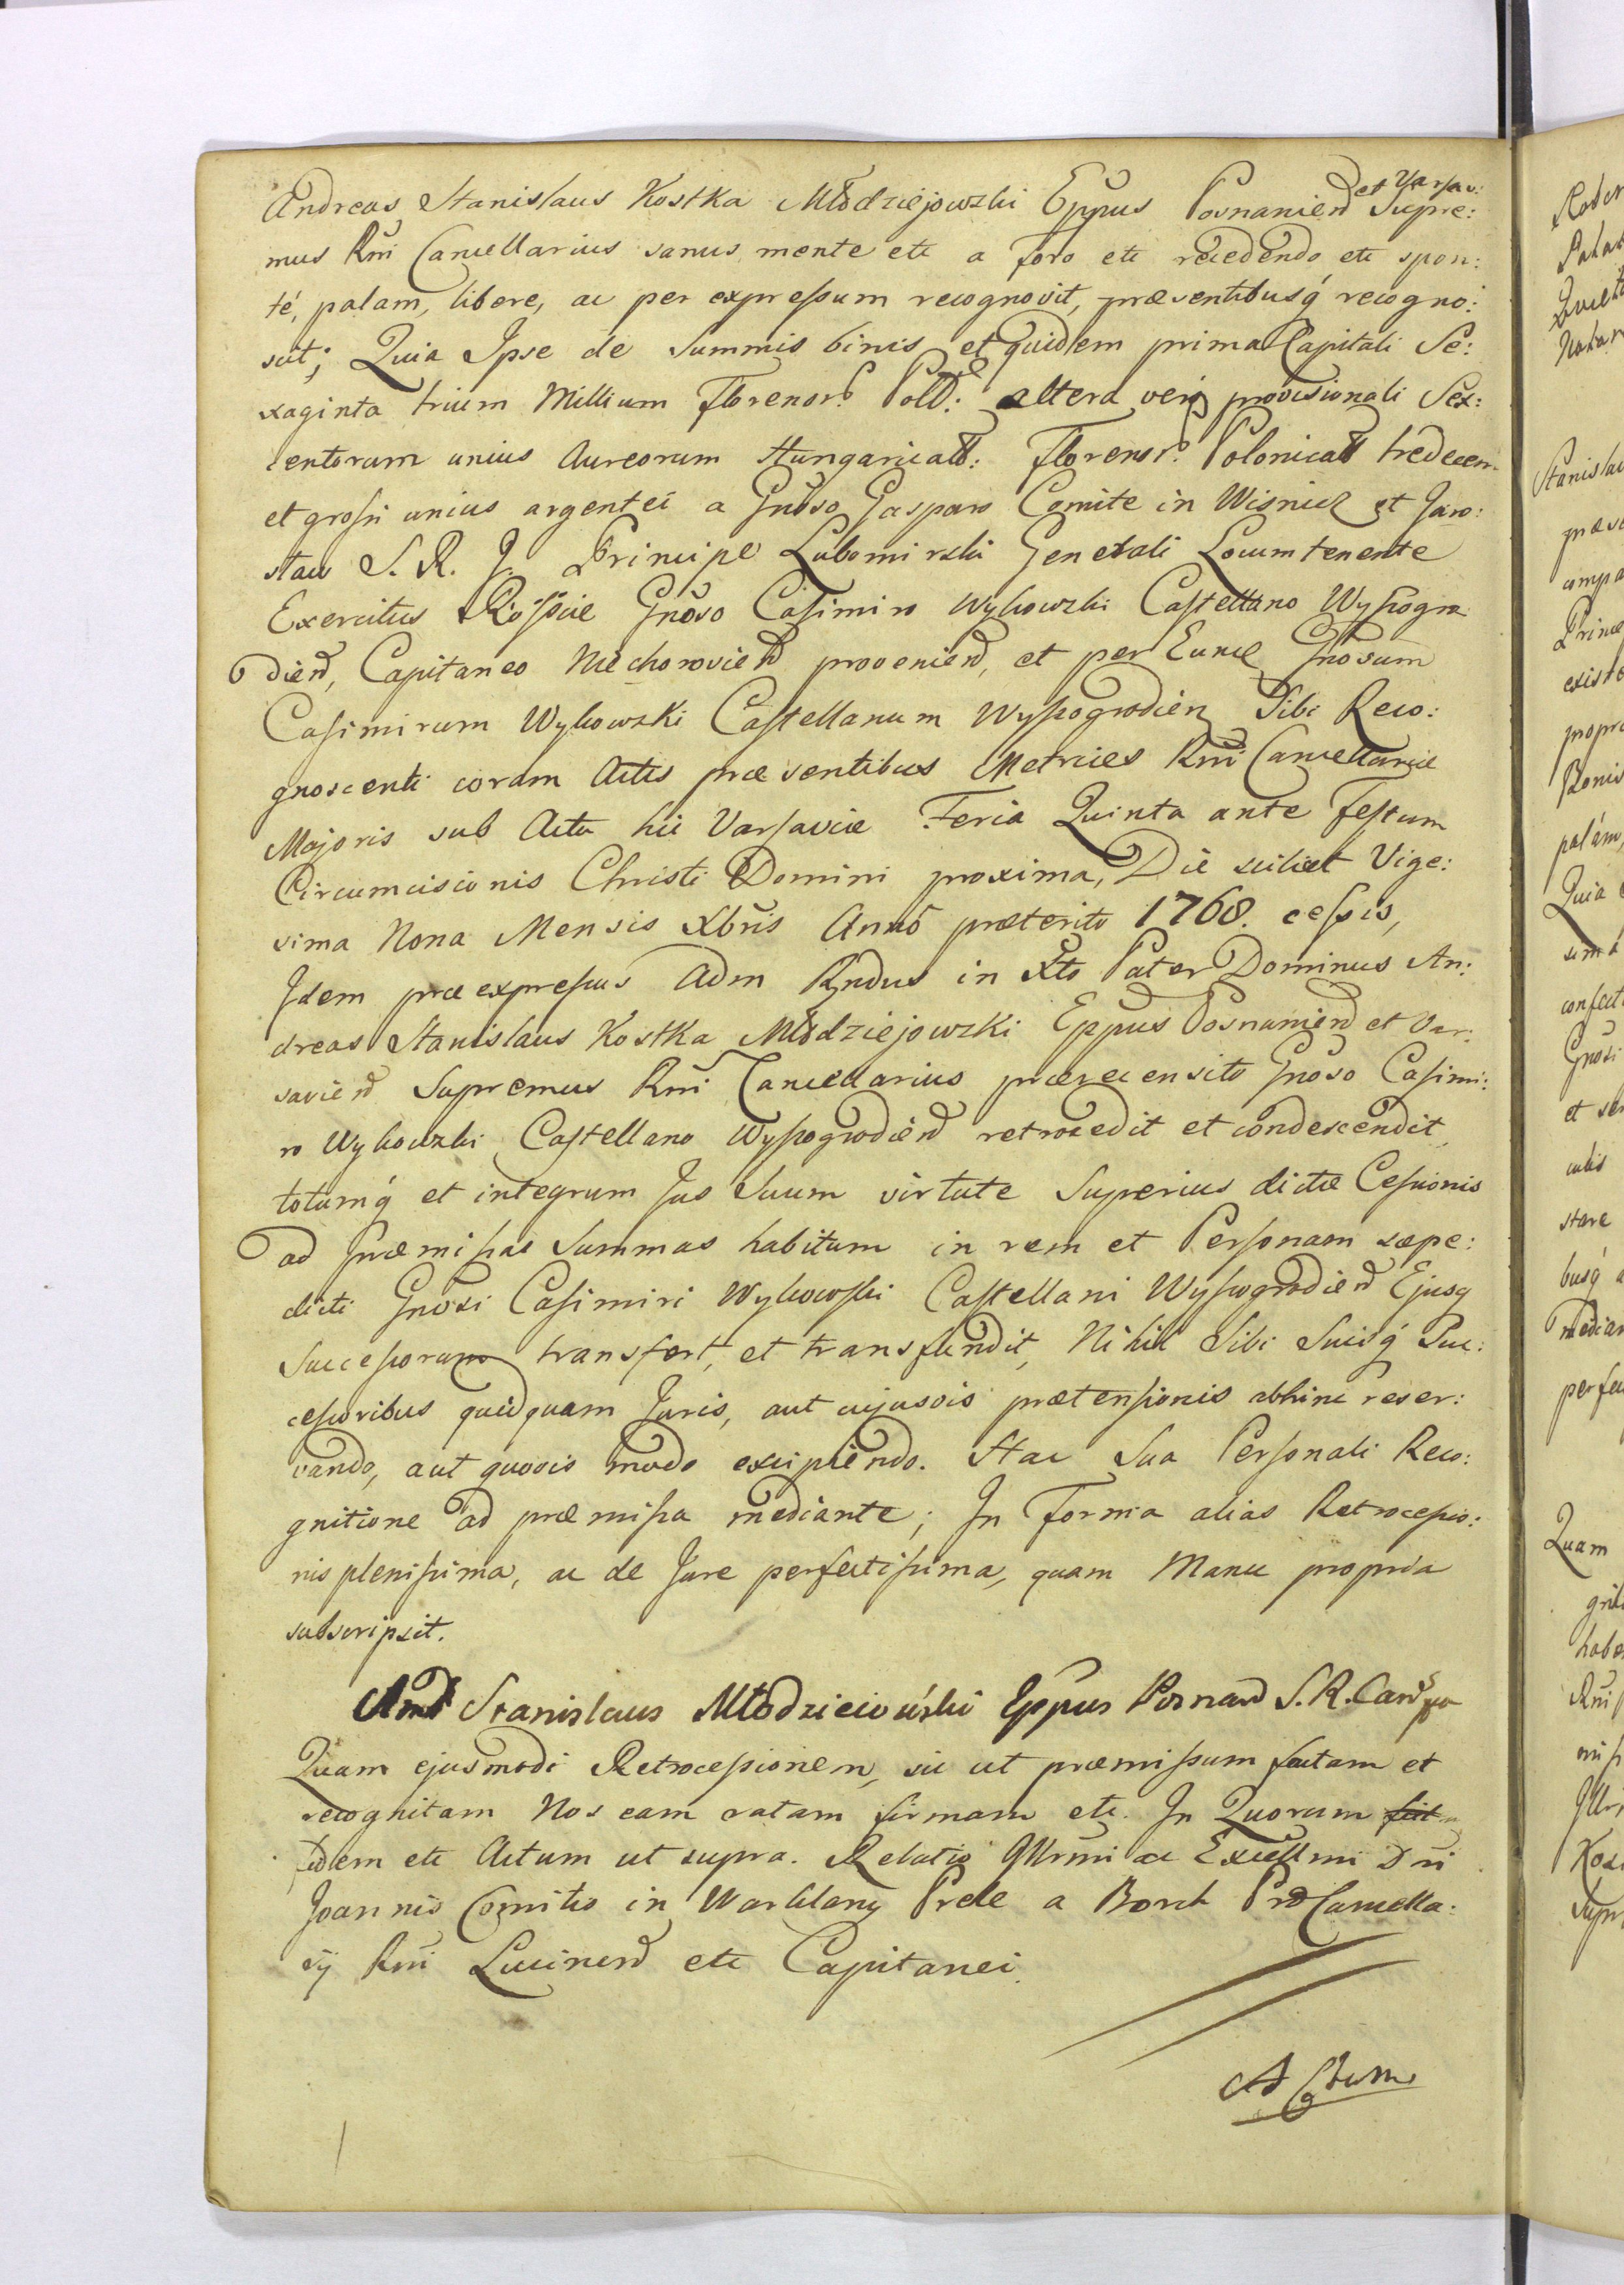 Andreas Stanislaus Kostka Młodziejowski Eppus Posnanien et Varsav: Supre:
mus Rni Cancellarius sanus mente etc a foro etc recedendo etc spon:
té, palam, libere, ac per expressum recognovit, præsentibusq́ recogno:
scit; Quia Ipse de Summis binis et quidem prima Capitali Se:
xaginta trium Millium Florenor. Poll: altera vero provisionali Sex:
centorum unius Aureorum Hungaricall: Florenor. Polonicall tredecem
et grossi unius argentei a Gnoso Gasparo Comite in Wisnicz et Jaro:
slaw S. R. J. Principe Lubomirski Generali Locumtenente
Exercitus Rossiæ Gnoso Casimiro Wykowski Castellano Wyszogro
dien, Capitaneo Niechorovien provenien, et per Eund Gnosum
Casimirum Wykowski Castellanum Wyszogrodien Sibi Reco:
gnoscenti coram Actis præsentibus Metrices Rni Cancellariæ
Majoris sub Actu hic Varsaviæ Feria Quinta ante Festum
Circumcisionis Christi Domini proxima, Die scilicet Vige:
sima Nona Mensis Xbris Annó præterito 1768. cessis,
Idem præexpressus Adm Rndus in Xto Pater Dominus An:
dreas Stanislaus Kostka Młodziejowski Eppus Posnanien et Var:
savien Supremus Rni Cancellarius præcensito Gnoso Casimi:
ro Wykowski Castellano Wyszogrodien retrocedit et condescendit
totumq́ et integrum Jus Suum virtute Superius dictæ Cessionis
ad præmissas Summas habitum in rem et Personam sæpe:
dicti Gnosi Casimiri Wykowski Castellani Wyszogrodien Ejusq
Successorum transfert, et transfundit, Nihil Sibi Suisq́ Suc:
cessoribus quidquam Juris, aut cujusvis prætensionis abhinc reser:
vando, aut quovis modo excipiendo. Hac Sua Personali Reco:
gnitione ad præmissa mediante; In Forma alias Retrocessio:
nis plenissima, ac de Jure perfectissima, quam Manu propria
subscripsit.
And Stanislaus Młodzieiowski Eppus Poznan S. R. Can
Quam ejusmodi Retrocessionem, sic ut præmissum factam et
recognitam Nos eam ratam firmam etc. In Quorum
fidem etc Actum ut supra. Relatio Illrmi ac Excellmi Dni
Joannis Comitis in Warklany Prele a Borch Pro Cancella:
rij Rni Lucinen etc Capitanei.
Actum